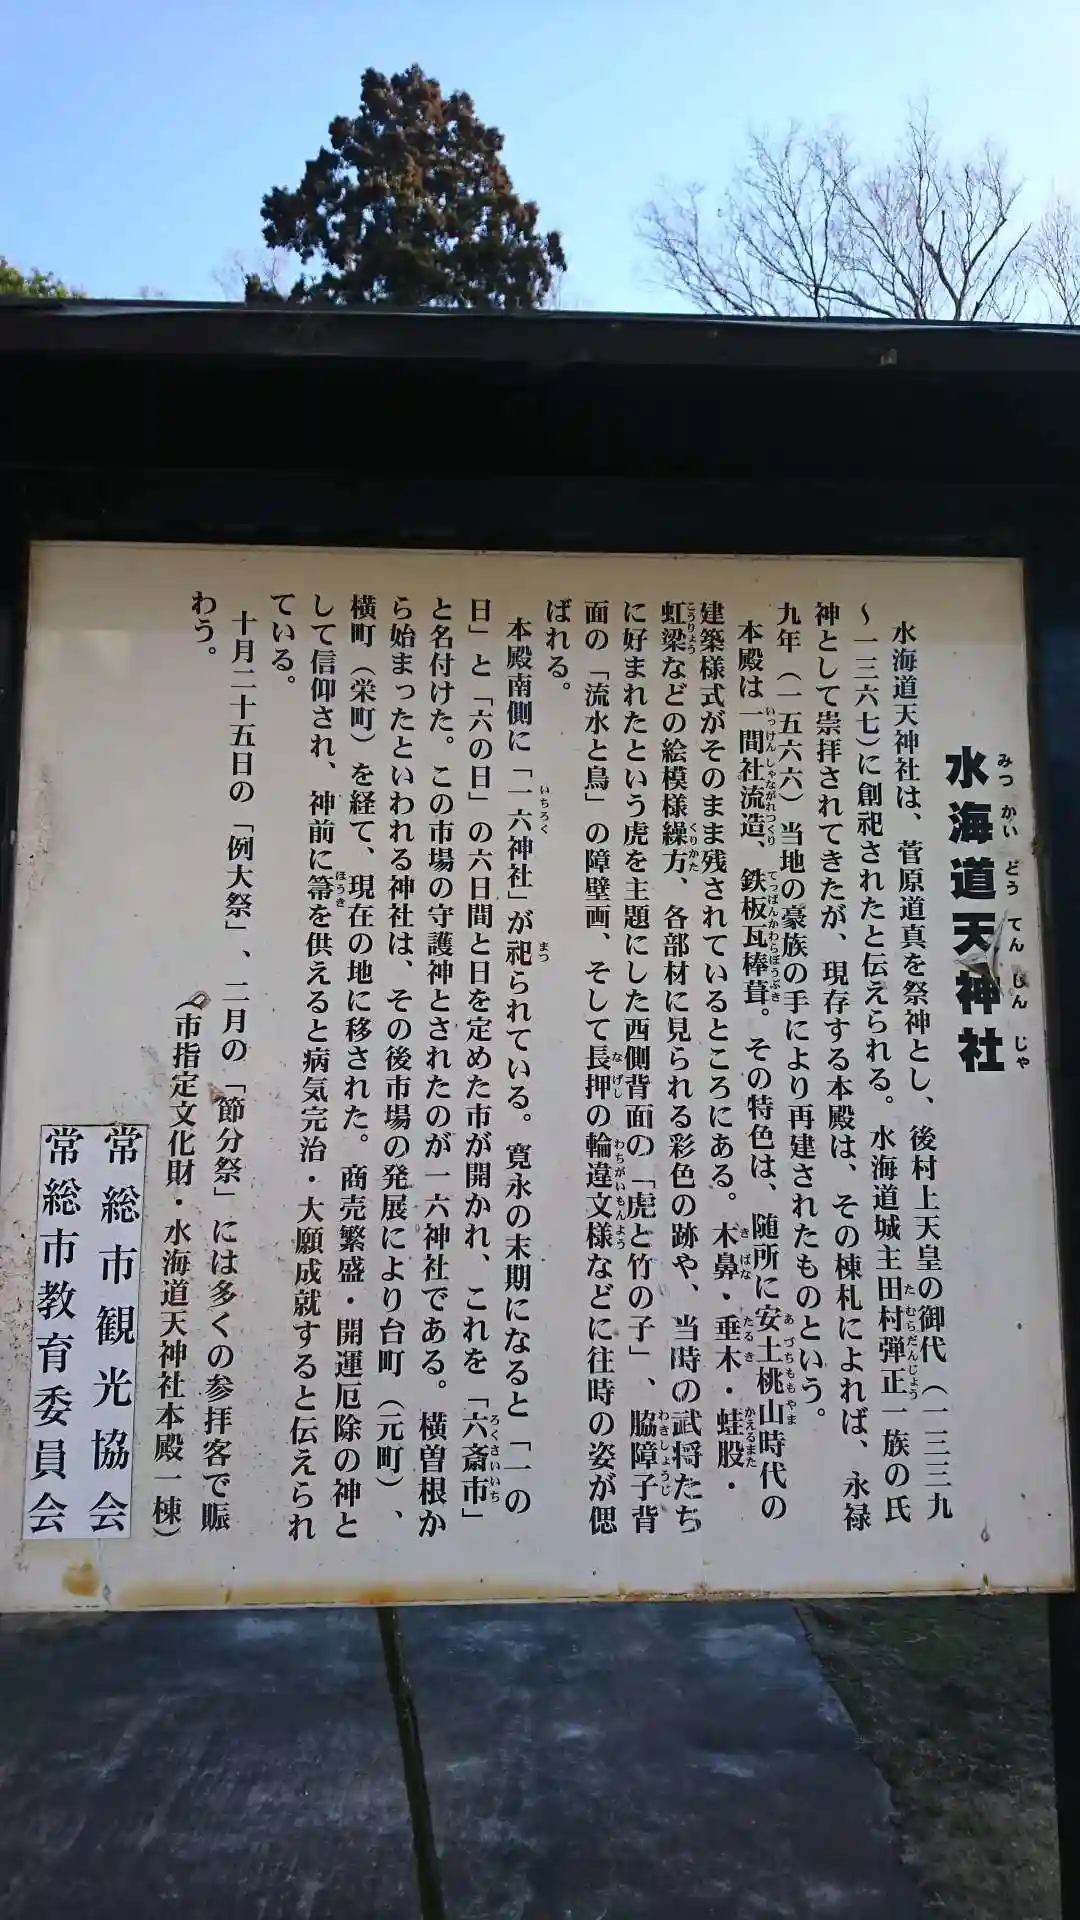 水海道天神社
水海道天神社は、菅原道真を祭神とし、後村上天皇の御代（一三三九
～一三六七）に創祀されたと伝えられる。水海道城主田村弾正一族の氏
神として崇拝されてきたが、現存する本殿は、その棟札によれば、永禄
九年（一五六六）当地の豪族の手により再建されたものという。
本殿は一間社流造、鉄板瓦棒葺。その特色は、随所に安土桃山時代の
建築様式がそのまま残されているところにある。木鼻・垂木・蛙股・
虹梁などの絵模様繰方、各部材に見られる彩色の跡や、当時の武将たち
に好まれたという虎を主題にした西側背面の「虎と竹の子」、脇障子背
面の「流水と鳥」の障壁画、そして長押の輪違文様などに往時の姿が偲
ばれる。
本殿南側に「一六神社」が祀られている。寛永の末期になると「一の
日」と「六の日」の六日間と日を定めた市が開かれ、これを「六斎市」
と名付けた。この市場の守護神とされたのが一六神社である。横曽根か
ら始まったといわれる神社は、その後市場の発展により台町（元町）、
横町（栄町）を経て、現在の地に移された。商売繁盛・開運厄除の神と
して信仰され、神前に箒を供えると病気完治・大願成就すると伝えられ
ている。
十月二十五日の「例大祭」、二月の「節分祭」には多くの参拝客で賑
わう。
（市指定文化財・水海道天神社本殿一棟）
常総市観光協会
常総市教育委員会